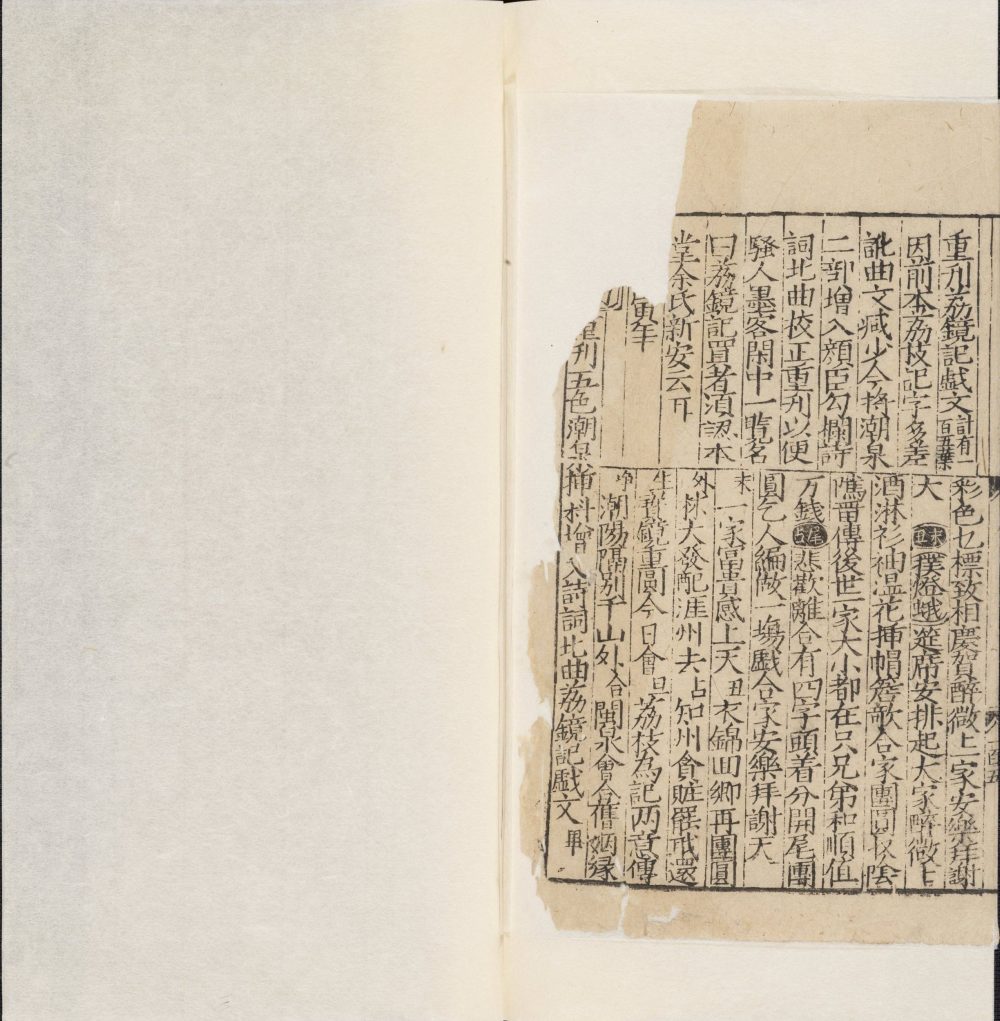 重刋荔鏡記戯文計有一百五葉
因前本荔枝記字多差
訛曲文减少今将潮泉
二部增入顏臣勾欄詩
詞北曲校正重刋以便
騷人墨客閑中一覧名
曰荔鏡記買者須認本
堂余氏新安云耳
寅年
重刋五色潮泉挿科增入詩詞北曲荔鏡記戯文畢
彩色乜標致相慶賀醉微上一家安樂拜謝
大 末丑 撲燈蛾 筵席安排起大家醉微上
酒淋衫袖温花挿帽簷歌合家團圓以陰
騭留傳後世一家大小都在只兄弟和順值
万錢 尾占 悲歡離合有四字頭着分開尾團
圓乞人編做一塲戯合家安樂拜謝天
末 一家富貴感上天 丑 衣錦回鄉再團圓
外 林大發配涯州去 占 知州貪賍罷职還
生 寳鏡重圓今日會 旦 荔枝為記两意傳
净 潮陽隔别千山外 合 閩泉會合舊姻縁
一百五